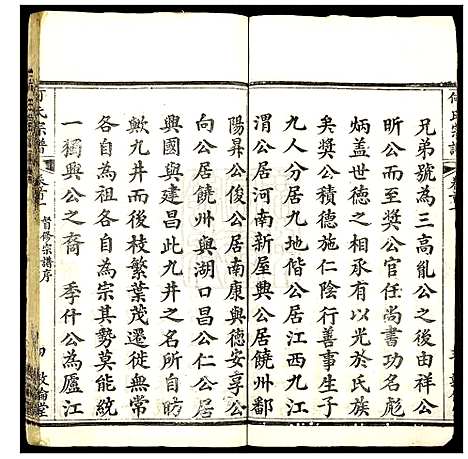 兄弟號為三高胤公之後由祥公
昕公而至奬公官任尚書功名彪
炳蓋世德之相承有以光於氏族
矣奬公積德施仁陰行善事生子
九人分居九地偕公居江西九江
興公居河南新屋興公居贛州鄱
陽昇公俊公居南康興德安享公
向公居饒州興湖口昌公仁公居
興國興建昌此九井之所自昉
歟九井而後枝繁葉茂遷徙無常
各自為祖各自為宗其勢莫能統
一獨興公之裔 季仟公為廬江
何氏宗譜
卷首
督修宗譜序
敦倫堂